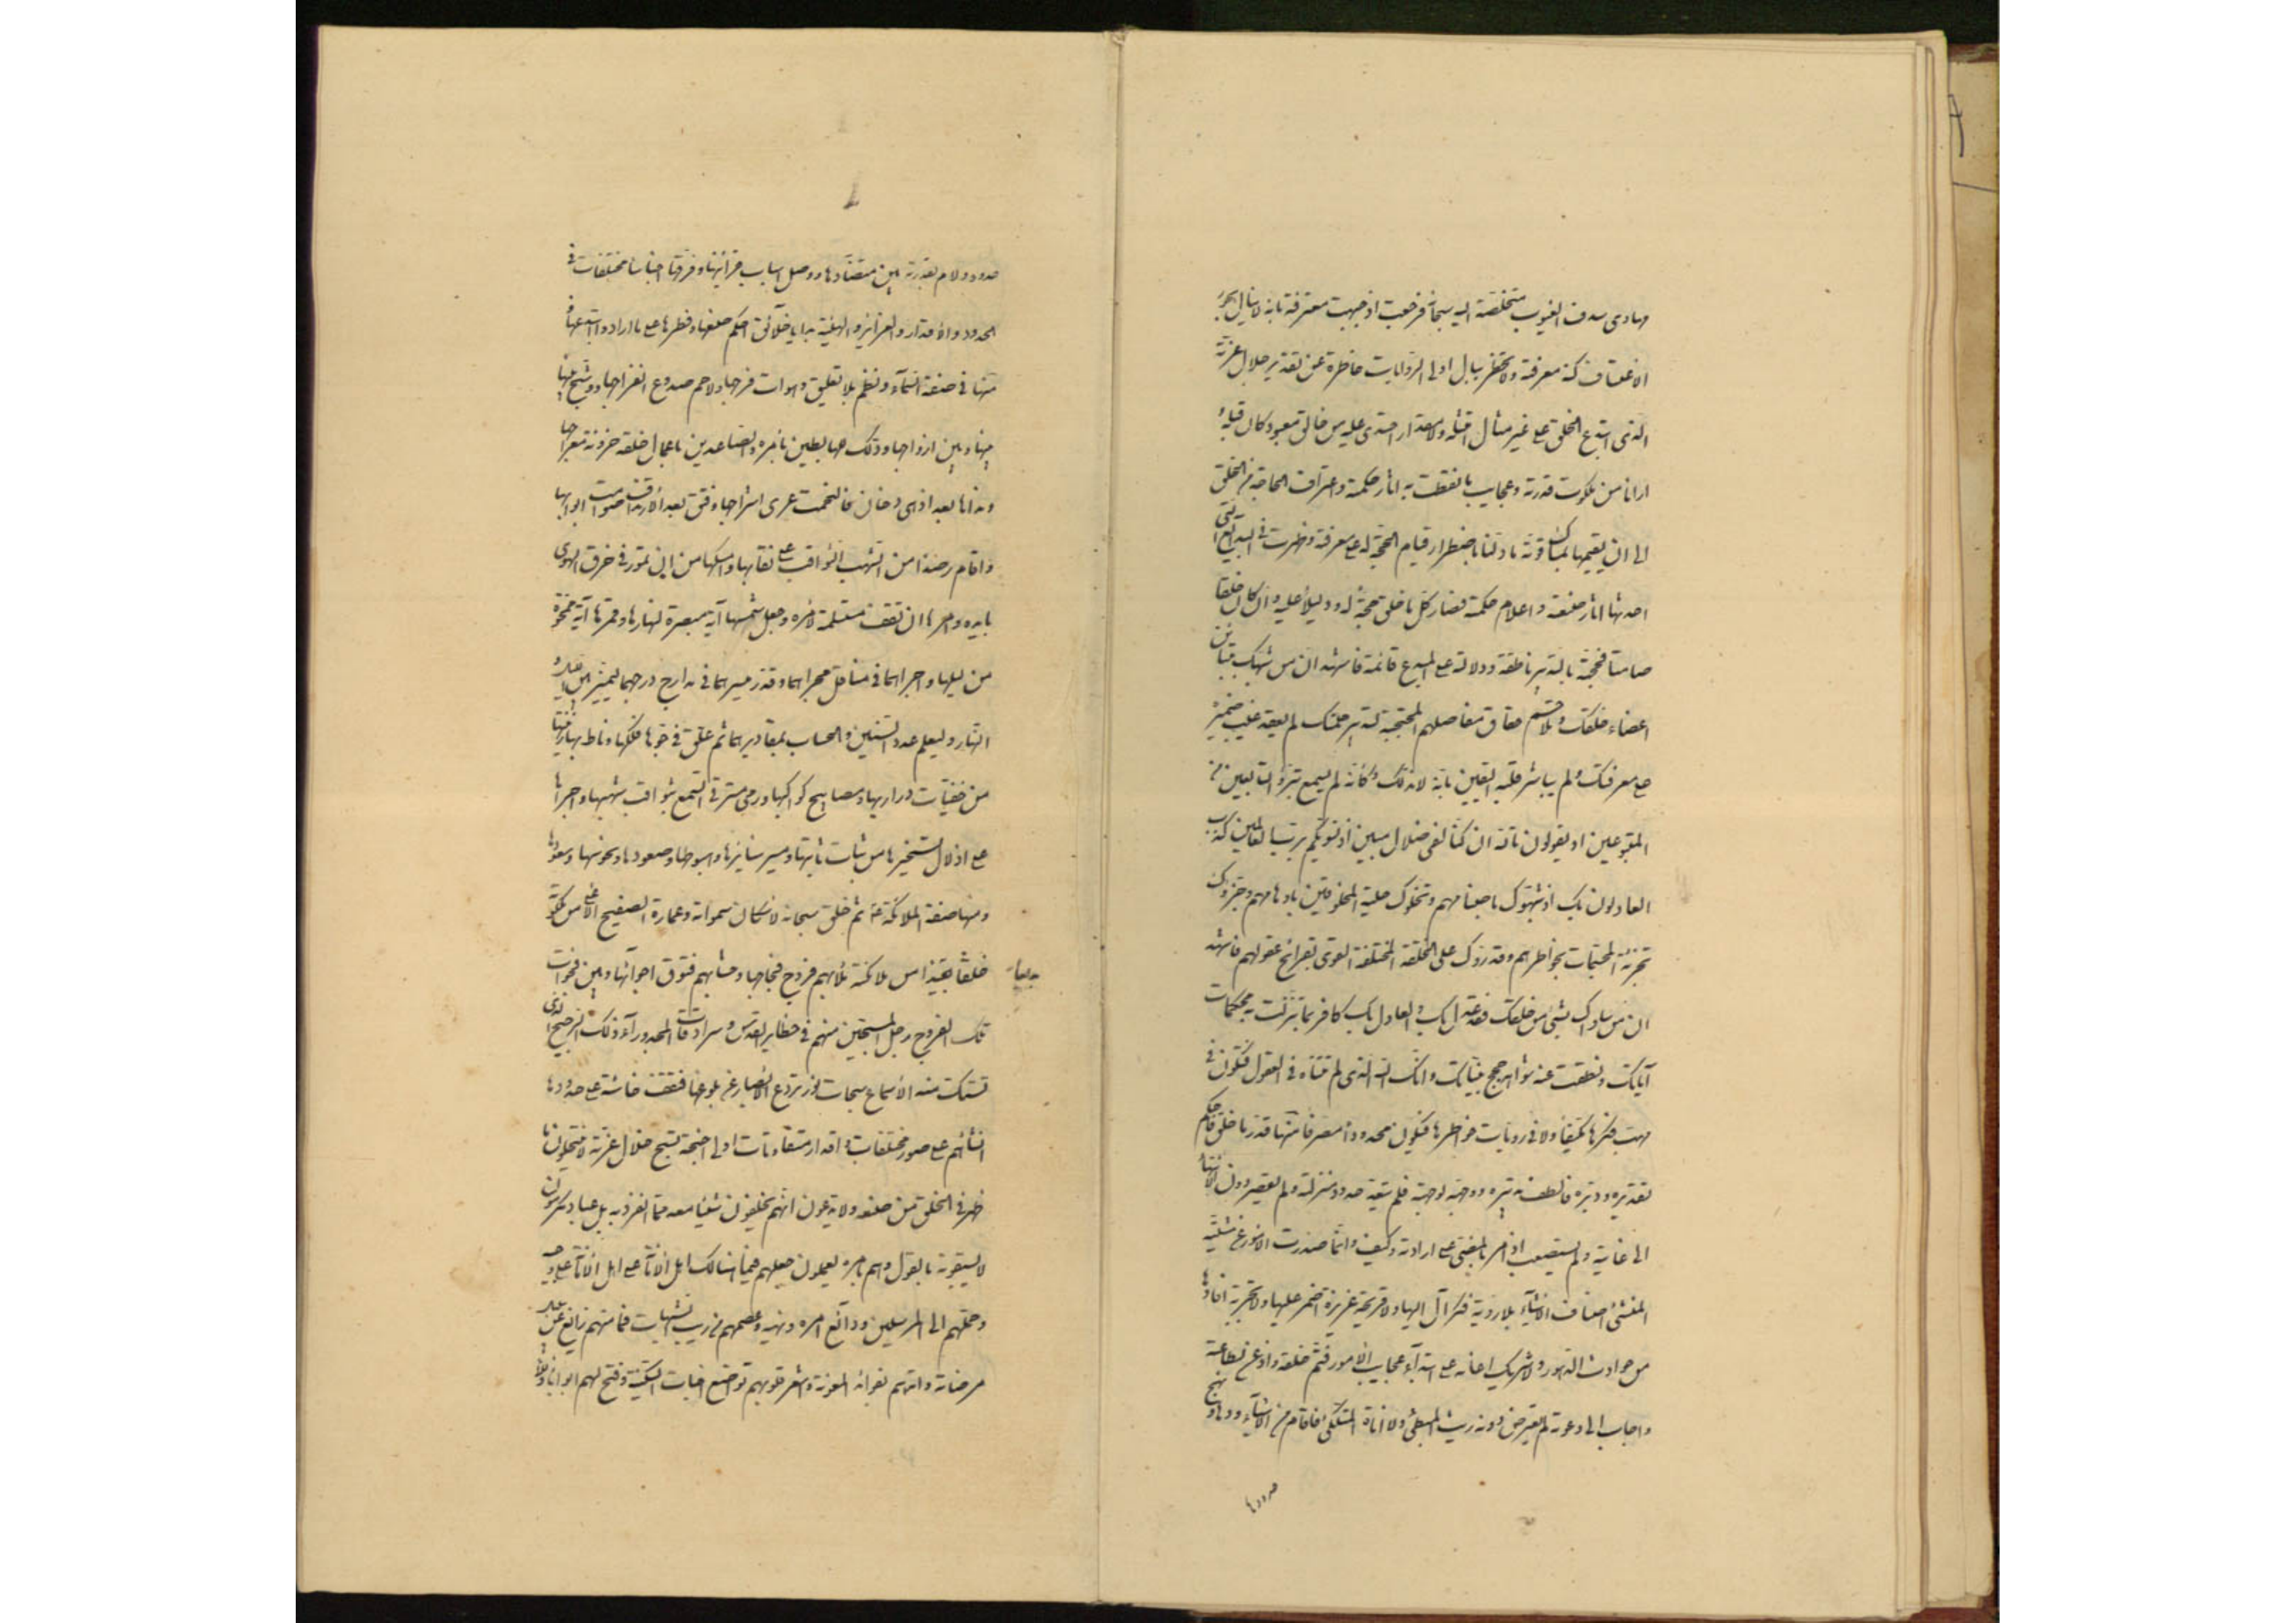 مهاوى سدف الغيوب متخلصة اليه سبحانه فرجعت اذ جبهت معترفة بانه لا ينال بجور
الاعتساف كنه معرفته ولا تخطر ببال اولى الرويات خاطرة من تقدير جلال عزته
الذى ابتدع الخلق على غير مثال امتثله ولا مقدار احتذى عليه من خالق معبود كان قبله
ارانا من ملكوت قدرته وعجايب ما نطقت به اثار حكمته واعتراف الحاجة من الخلق
الى ان يقيمها بمساك قوته ما دلنا باضطرار قيام الحجة له على معرفته وظهرت فى البدايع التى
احدثها اثار صنعته واعلام حكمته فصار كل ما خلق حجة له ودليلا عليه وان كان خلقا
صامتا فحجته بالتدبير ناطقة ودلالته على المبدع قائمة فاشهد ان من شبهك بتباين
اعضاء خلقك وتلاحم حقاق مفاصلهم المحتجبة لتدبير حكمتك لم يعقد غيب ضميره
على معرفتك ولم يباشر قلبه اليقين بانه لا ند لك وكانه لم يسمع تبرؤ التابعين من
المتبوعين اذ يقولون تالله ان كنا لفى ضلال مبين اذ نسويكم برب العالمين كذب
العادلون بك اذ شبهوك باصنامهم ونحلوك حلية المخلوقين باوهامهم وجزؤك
تجزئة المجسمات بخواطرهم وقدروك على الخلقة المختلفة القوى بقرايح عقولهم فاشهد
ان من ساواك بشئ من خلقك فقد عدل بك والعادل بك كافر بما تنزلت به محكمات
آياتك ونطقت عنه شواهد حجج بيناتك وانك انت الله الذى لم تتناه فى العقول فتكون فى
مهب فكرها مكيفا ولا فى رويات خواطرها فتكون محدودا مصرفا منها قدر ما خلق فاحكم
تقديره ودبره فالطف تدبيره ووجهه لوجهته فلم يتعد حدود منزلته ولم يقصر دون الانتهاء
الى غايته ولم يستصعب اذ امر بالمضى على ارادته وكيف وانما صدرت الامور عن مشيته
المنشئ اصناف الاشياء بلا روية فكر آل اليها ولا قريحة غريزة اضمر عليها ولا تجربة افادها
من حوادث الدهور ولا شريك اعانه على ابتداع عجايب الامور فتم خلقه واذعن لطاعته
واجاب الى دعوته لم يعترض دونه ريث المبطئ ولا اناة المتلكئ فاقام من الاشياء اودها ونهج
حدودها
حدودها ولاءم بقدرته بين متضادها ووصل اسباب قرائنها وفرقها اجناسا مختلفات فى
الحدود والاقدار والغرائز والهيئات بدايا خلائق احكم صنعها وفطرها على ما اراد وابتدعها
منها فى صفة السماء ونظم بلا تعليق رهوات فرجها ولاحم صدوع انفراجها ووشج بينها
بينها وبين ازواجها وذلل للهابطين بامره والصاعدين باعمال خلقه حزونة معراجها
وناداها بعد اذ هى دخان فالتحمت عرى اشراجها وفتق بعد الارتتاق صوامت ابوابها
واقام رصدا من الشهب الثواقب على نقابها وامسكها من ان تمور فى خرق الهوى
بايده وامرها ان تقف مستسلمة لامره وجعل شمسها آية مبصرة لنهارها وقمرها آية ممحوة
من ليلها واجراهما فى مناقل مجراهما وقدر مسيرهما فى مدارج درجهما ليميز بين الليل و
النهار وليعلم عدد السنين والحساب بمقاديرهما ثم علق فى جوها فلكها وناط بها زينتها
من خفيات دراريها ومصابيح كواكبها ورمى مسترقى السمع بثواقب شهبها واجراها
على اذلال تسخيرها من ثبات ثابتها ومسير سايرها وهبوطها وصعودها ونحوسها وسعودها
ومنها صفة الملائكة ثم خلق سبحانه لاسكان سمواته وعمارة الصفيح الاعلى من ملكوته
خلقا بديعا من ملائكته ملأ بهم فروج فجاجها وحشا بهم فتوق اجوائها وبين فجوات
بديعا
تلك الفروج زجل المسبحين منهم فى حظاير القدس وسرادقات المجد ووراء ذلك الرجيج الذى
تستك منه الاسماع سبحات نور تردع الابصار عن بلوغها فتقف خاسئة على حدودها
انشأهم على صور مختلفات واقدار متفاوتات اولى اجنحة تسبح جلال عزته لا ينتحلون ما
ظهر فى الخلق من صنعه ولا يدعون انهم يخلقون شيئا معه مما انفرد به بل عباد مكرمون
لا يسبقونه بالقول وهم بامره يعملون جعلهم فيما هنالك اهل الامانة على وحيه
وحملهم الى المرسلين ودائع امره ونهيه وعصمهم من ريب الشبهات فما منهم زائغ عن سبيل
مرضاته وامدهم بفوائد المعونة واشعر قلوبهم تواضع اخبات السكينة وفتح لهم ابوابا ذللا